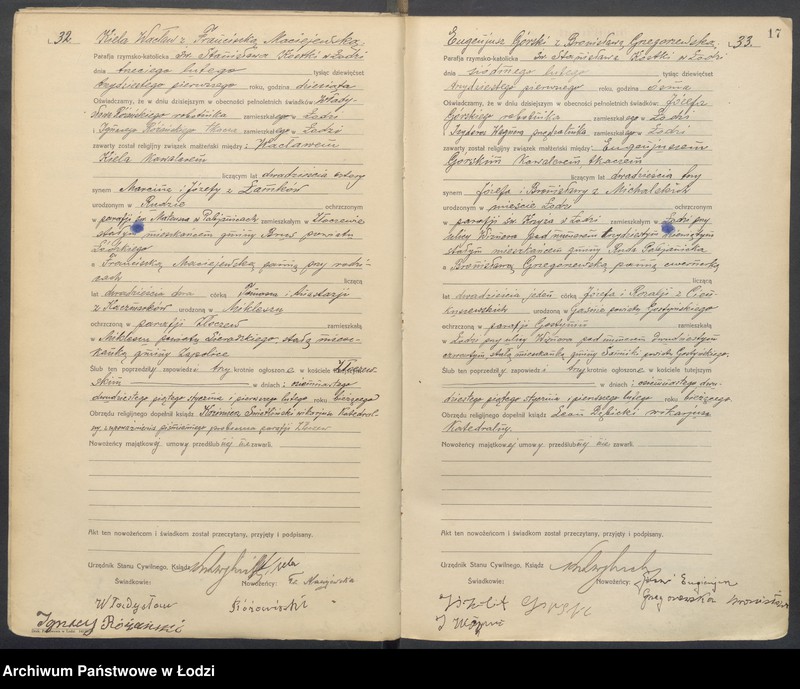 32. Kiela Wacław z Franciszką Maciejewską
Parafia rzymsko-katolicka Św. Stanisława Kostki w Łodzi
dnia trzeciego lutego tysiąc dziewięćset
trzydziestego pierwszego roku, godzina dziesiąta
Oświadczamy, że w dniu dzisiejszym w obecności pełnoletnich świadków: Włady-
robotnika zamieszkałego w Łodzi
i Ignacego zamieszkałego w Łodzi
zawarty został religijny związek małżeński między: Wacławem
Kiela kawalerem
liczącym lat dwadzieścia cztery
synem Marcina i Józefy z
urodzonym w Rudzie ochrzczonym
w parafji św. Mateusza w Pabjanicach, zamieszkałym w
stałym mieszkańcem gminy Brus powiatu
Łódzkiego
a Franciszką Maciejewską panną przy rodzi-
cach
liczącą
lat dwadzieścia dwa córką Tomasza i Anastazji
z Kaczmarków urodzoną w
ochrzczoną w parafji zamieszkałą
w powiatu Sieradzkiego, stałą miesz-
kanką gminy Zapolice
Ślub ten poprzedziły zapowiedzi trzykrotnie ogłoszone w kościele
w dniach: osiemnastego
dwudziestego piątego stycznia i pierwszego lutego roku bieżącego
Obrzędu religijnego dopełnił ksiądz Kazimierz wikarjusz Katedral-
ny z upoważnienia piśmiennego proboszcza parafji
Nowożeńcy majątkowej umowy przedślubnej nie zawarli.
Akt ten nowożeńcom i świadkom został przeczytany, przyjęty i podpisany.
Urzędnik Stanu Cywilnego, Ksiądz Kiela
Świadkowie: Nowożeńcy: Fr. Maciejewska
Władysław
Ignacy Różański
17
Eugenjusz Górski z Bronisławą Grzegorzewską 33.
Parafia rzymsko-katolicka Św. Stanisława Kostki w Łodzi
dnia siódmego lutego tysiąc dziewięćset
trzydziestego pierwszego roku, godzina ósma
Oświadczamy, że w dniu dzisiejszym w obecności pełnoletnich świadków: Józefa
Górskiego robotnika zamieszkałego w Łodzi
i zamieszkałego w Łodzi
zawarty został religijny związek małżeński między: Eugenjuszem
Górskim kawalerem tkaczem
liczącym lat dwadzieścia trzy
synem Józefa i Bronisławy z Michalskich
urodzonym w mieście Łodzi ochrzczonym
w parafji św. Krzyża w Łodzi zamieszkałym w Łodzi przy
ulicy Wiznera pod numerem trzydziestym
stałym mieszkańcem gminy Ruda Pabjanicka
a Bronisławą Grzegorzewską panną
liczącą
lat dwadzieścia jeden córką Józefa i Rozalji z
urodzoną w powiatu Gostyńskiego
ochrzczoną w parafji Gostynin zamieszkałą
w Łodzi przy ulicy Wiznera pod numerem dwudziestym
czwartym, stałą mieszkanką gminy powiatu Gostyńskiego.
Ślub ten poprzedziły zapowiedzi trzykrotnie ogłoszone w kościele tutejszym
w dniach: osiemnastego dwu-
dziestego piątego stycznia i pierwszego lutego roku bieżącego.
Obrzędu religijnego dopełnił ksiądz Leon wikarjusz
Katedralny.
Nowożeńcy majątkowej umowy przedślubnej nie zawarli.
Akt ten nowożeńcom i świadkom został przeczytany, przyjęty i podpisany.
Urzędnik Stanu Cywilnego, Ksiądz
Świadkowie: Nowożeńcy: Eugenjusz
Grzegorzewska Bronisława
Józef
Archiwum Państwowe w Łodzi